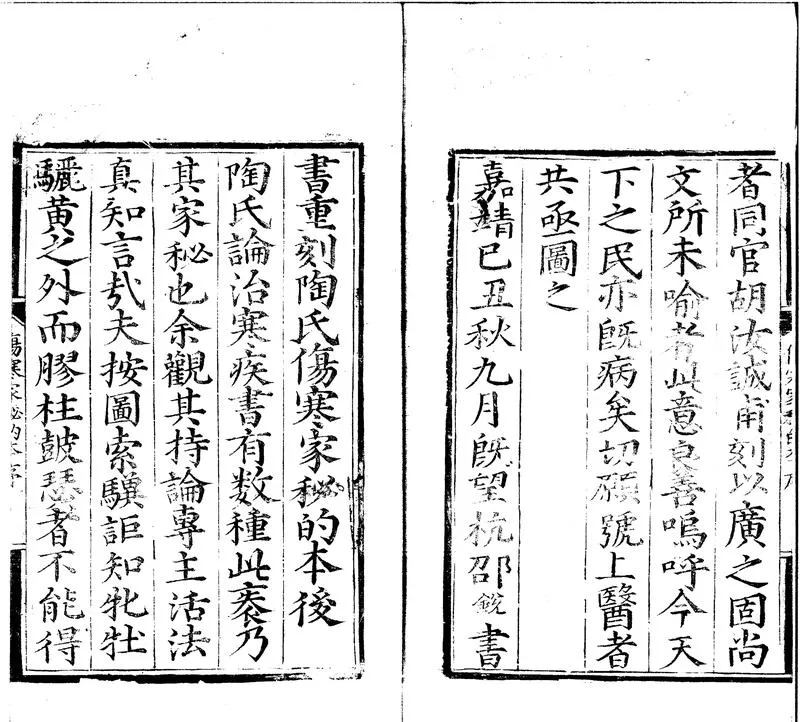 者同官胡汝誠甫刻以廣之固尚
文所未喻者此意良善嗚呼今天
下之民亦旣病矣切願號上醫者
共亟圖之
嘉靖己丑秋九月旣望杭邵銳書
書重刻陶氏傷寒家秘的本後
陶氏論治寒疾書有數種此袠乃
其家秘也余觀其持論專主活法
真知言㢤夫按圖索驥詎知牝牡
驪黃之外而膠柱鼓瑟者不能得
傷寒家秘的本序